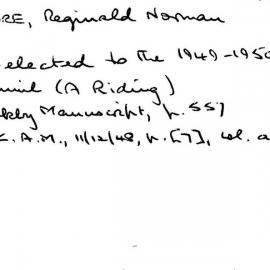 RE, Reginald Norman
elected to the 1949-1950
(A Riding)
Manuscript, p.557
E.A.M., 11/12/48, p.[7], col. a